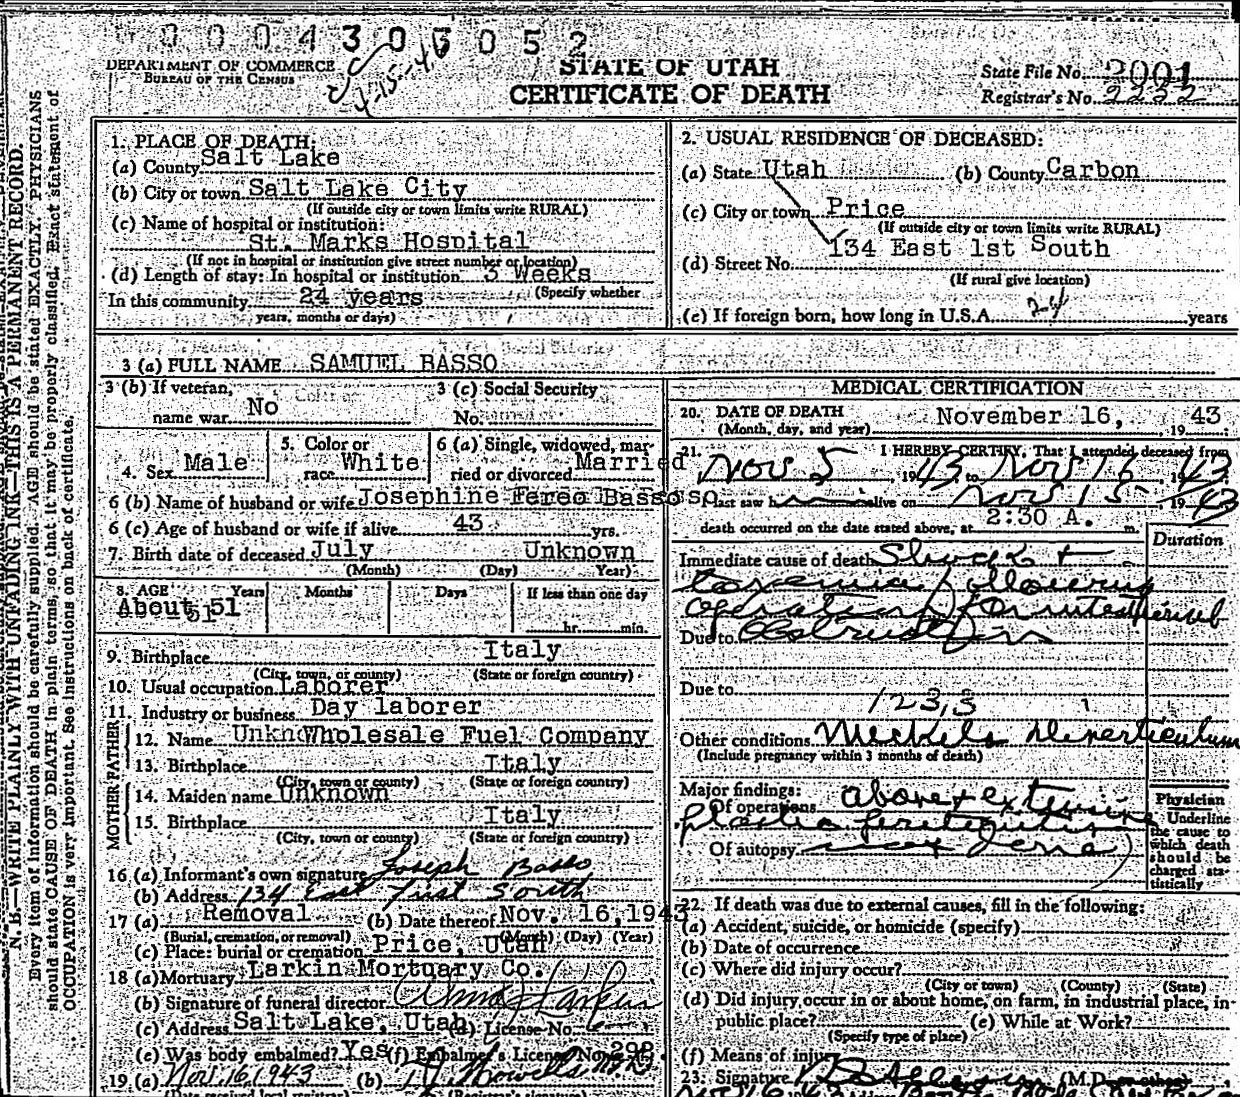 0004305052
4-15-46
DEPARTMENT OF COMMERCE
BUREAU OF THE CENSUS
STATE OF UTAH
CERTIFICATE OF DEATH
State File No. 2001
Registrar's No. 2232
N. B.—WRITE PLAINLY WITH UNFADING INK—THIS IS A PERMANENT RECORD.
Every item of information should be carefully supplied. AGE should be stated EXACTLY. PHYSICIANS
should state CAUSE OF DEATH in plain terms, so that it may be properly classified. Exact statement of
OCCUPATION is very important. See instructions on back of certificate.
1. PLACE OF DEATH:
(a) County Salt Lake
(b) City or town Salt Lake City
(If outside city or town limits write RURAL)
(c) Name of hospital or institution:
St. Marks Hospital
(If not in hospital or institution give street number or location)
(d) Length of stay: In hospital or institution 3 Weeks
(Specify whether
In this community 24 years
years, months or days)
2. USUAL RESIDENCE OF DECEASED:
(a) State Utah (b) County Carbon
(c) City or town Price
(If outside city or town limits write RURAL)
134 East 1st South
(d) Street No.
(If rural give location)
(e) If foreign born, how long in U.S.A. 24 years
3 (a) FULL NAME SAMUEL BASSO
3 (b) If veteran,
name war No
3 (c) Social Security
No.
4. Sex Male
5. Color or
race White
6 (a) Single, widowed, mar-
ried or divorced Married
6 (b) Name of husband or wife Josephine Basso
6 (c) Age of husband or wife if alive 43 yrs.
7. Birth date of deceased July Unknown
(Month) (Day) Year)
8. AGE Years Months Days If less than one day
About 51
hr. min.
9. Birthplace Italy
(City, town, or county) (State or foreign country)
10. Usual occupation Laborer
11. Industry or business Day laborer
FATHER
12. Name Wholesale Fuel Company
13. Birthplace Italy
(City, town or county) (State or foreign country)
MOTHER
14. Maiden name Unknown
15. Birthplace Italy
(City, town, or county) (State or foreign country)
16 (a) Informant's own signature Joseph Basso
(b) Address 134 East First South
17 (a) Removal (b) Date thereof Nov. 16, 1943
(Burial, cremation, or removal) (Month) (Day) (Year)
(c) Place: burial or cremation Price, Utah
18 (a) Mortuary Larkin Mortuary Co.
(b) Signature of funeral director Larkin
(c) Address Salt Lake, Utah (d) License No.
(e) Was body embalmed? Yes (f) Embalmer's License No.
19 (a) Nov. 16, 1943 (b)
(Date received local registrar) (Registrar's signature)
MEDICAL CERTIFICATION
20. DATE OF DEATH
(Month, day, and year) November 16, 19 43
21. I HEREBY CERTIFY, That I attended deceased from
Nov 5, 1943, to Nov 16 1943
last saw h alive on Nov 15 1943
death occurred on the date stated above, at 2:30 A. m.
Duration
Immediate cause of death Shock +
toxemia following
operation for intestinal
Due to obstruction
Due to
123,3
Other conditions Meckels Diverticulum
(Include pregnancy within 3 months of death)
Major findings:
Of operations above + extensive
plastic peritonitis
Of autopsy
Physician
Underline
the cause to
which death
should be
charged sta-
tistically
22. If death was due to external causes, fill in the following:
(a) Accident, suicide, or homicide (specify)
(b) Date of occurrence
(c) Where did injury occur?
(City or town) (County) (State)
(d) Did injury occur in or about home, on farm, in industrial place, in
public place? (e) While at Work?
(Specify type of place)
(f) Means of injury
23. Signature (M.D. or other)